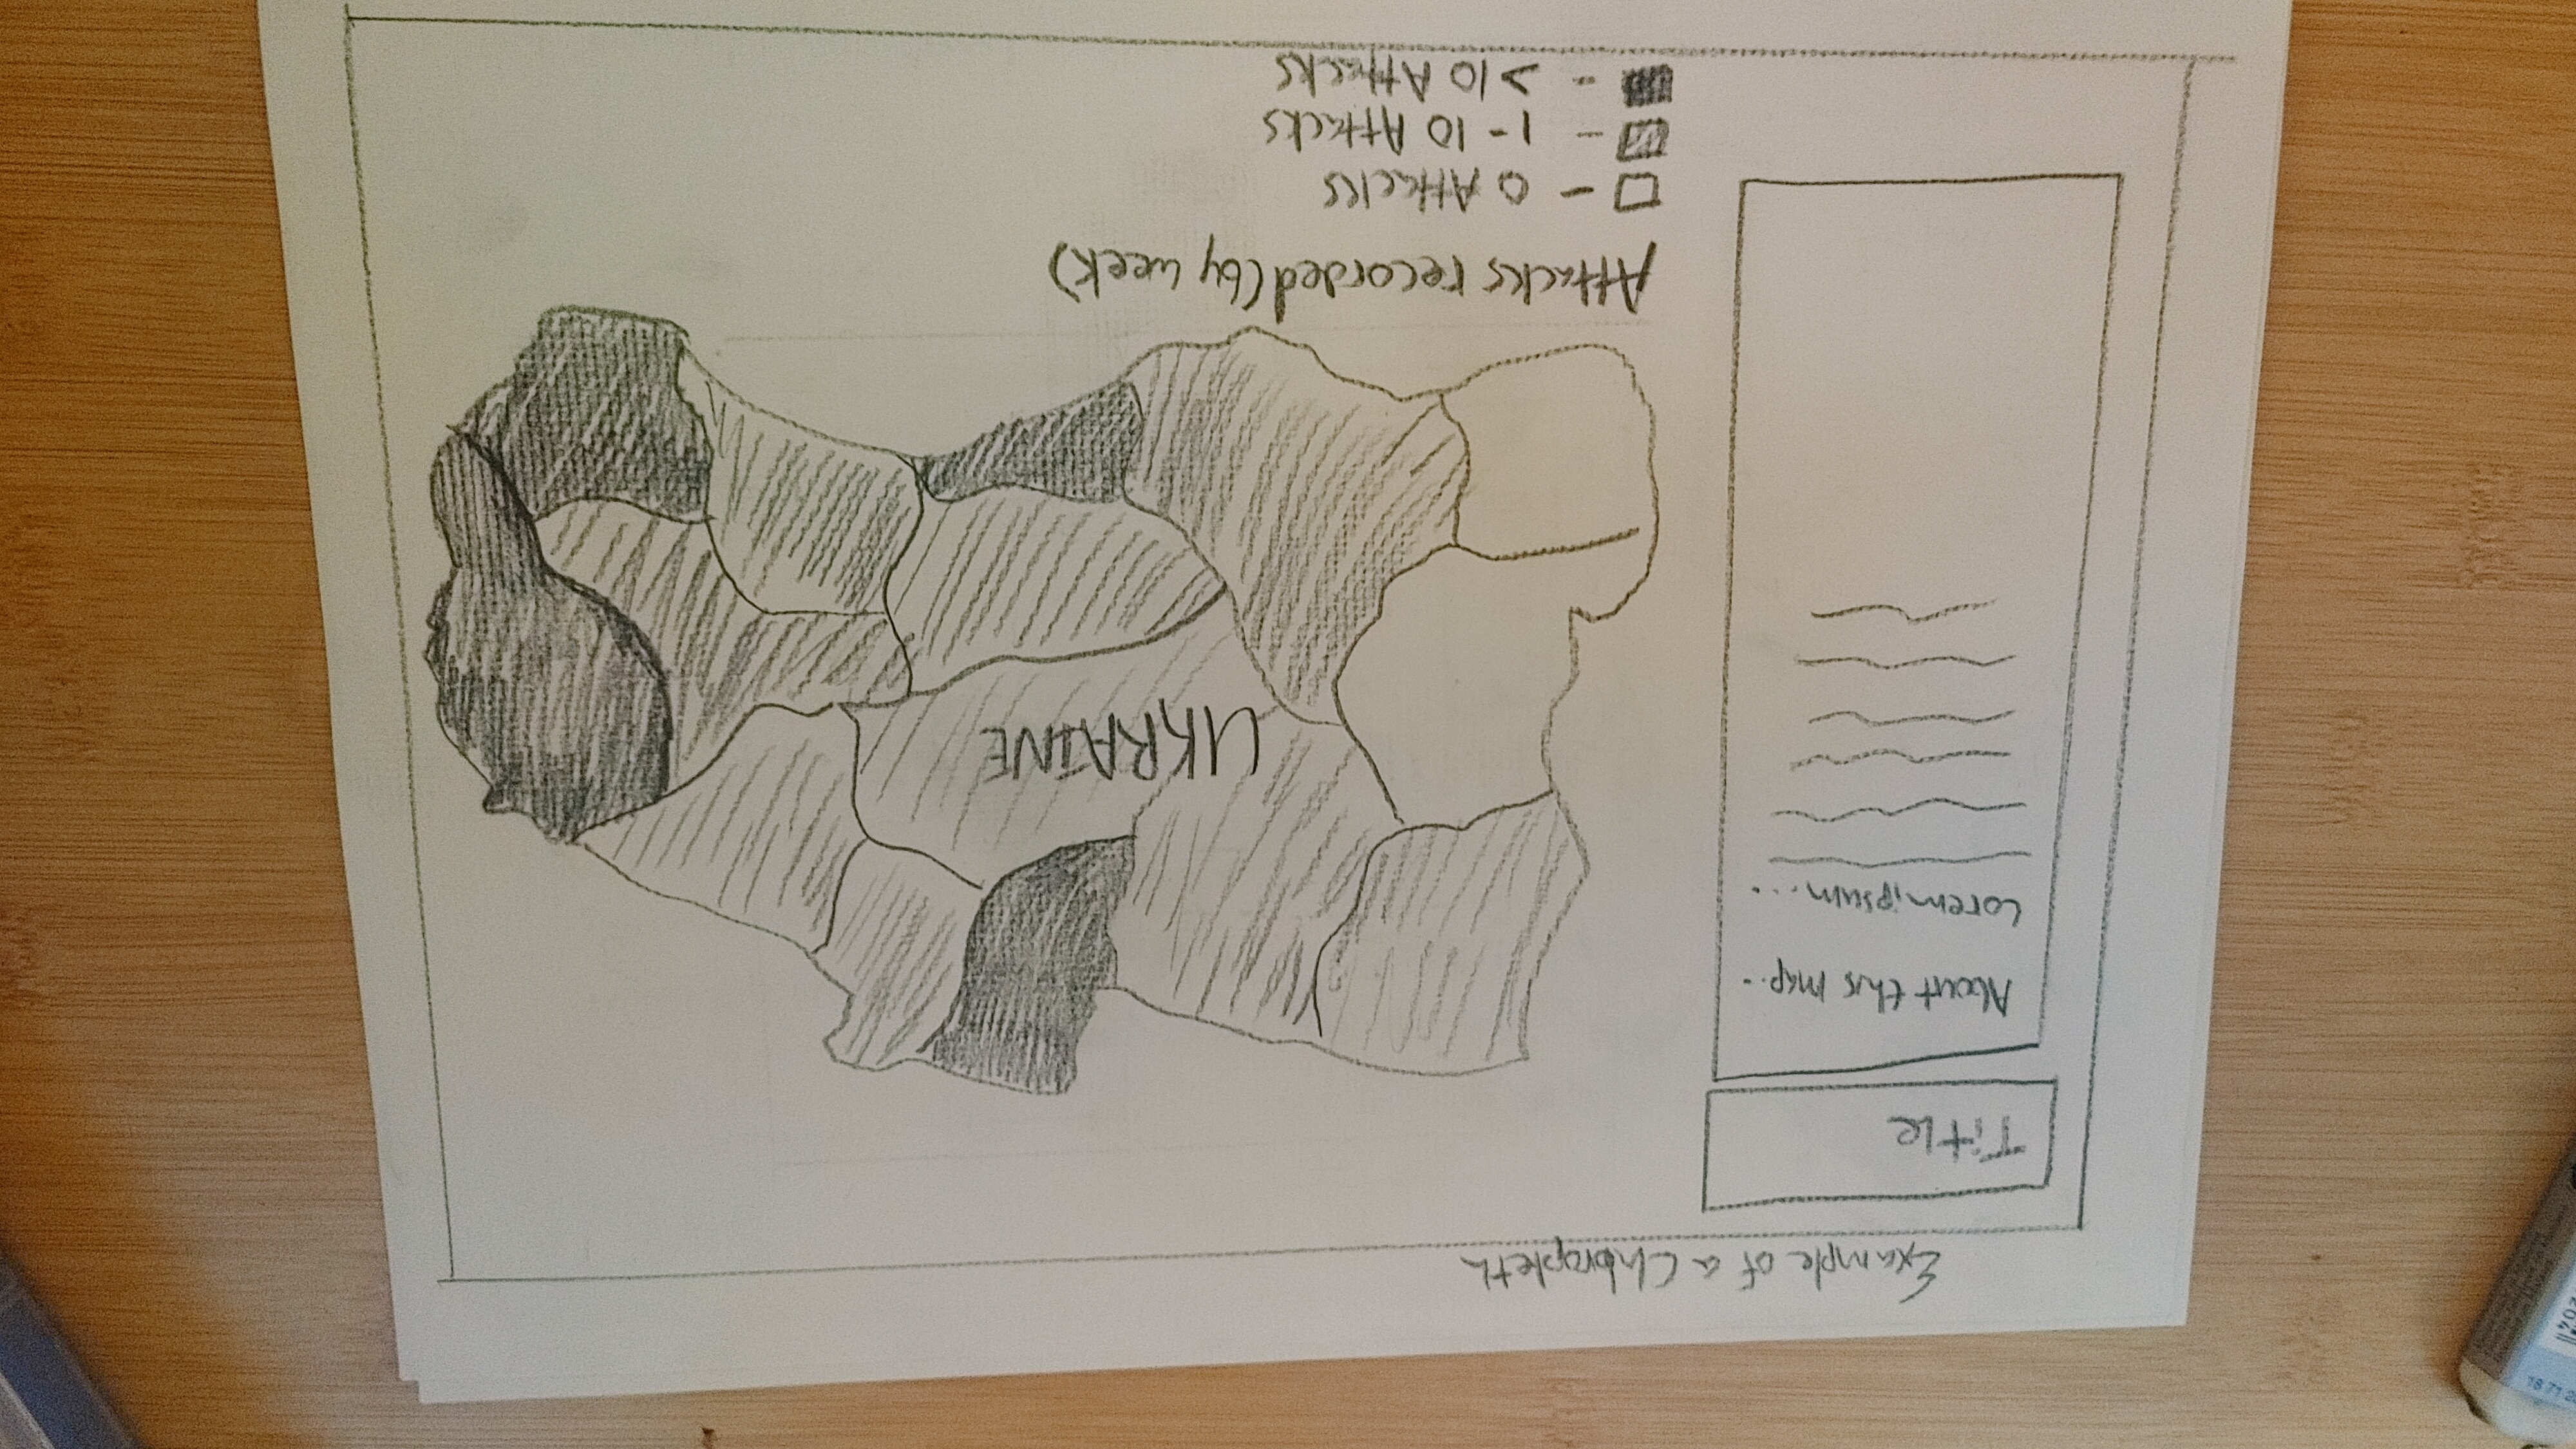 Example of a Chloropleth
Title
About this map..
Lorem ipsum...
UKRAINE
Attacks recorded (by week)
- 0 Attacks
- 1-10 Attacks
- >10 Attacks